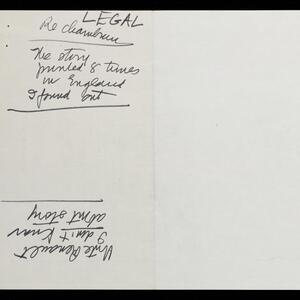 LEGAL
Re
The story
printed 8 times
in England
I found out
Write Renault
I don't know
about story